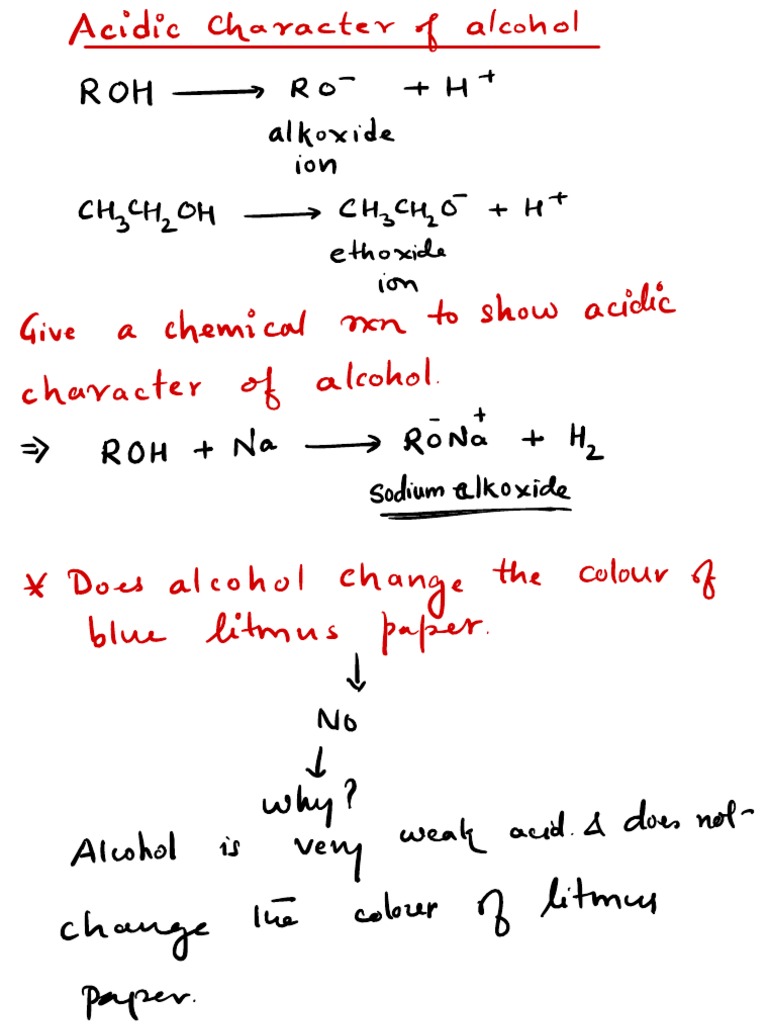 Acidic Character of alcohol
ROH ⟶ RO⁻ + H⁺
alkoxide
ion
CH₃CH₂OH ⟶ CH₃CH₂O⁻ + H⁺
ethoxide
ion
Give a chemical rxn to show acidic
character of alcohol.
⇒ ROH + Na ⟶ RO⁻Na⁺ + H₂
Sodium alkoxide
* Does alcohol change the colour of
blue litmus paper.
↓
No
↓
why?
Alcohol is very weak acid. & does not
change the colour of litmus
paper.